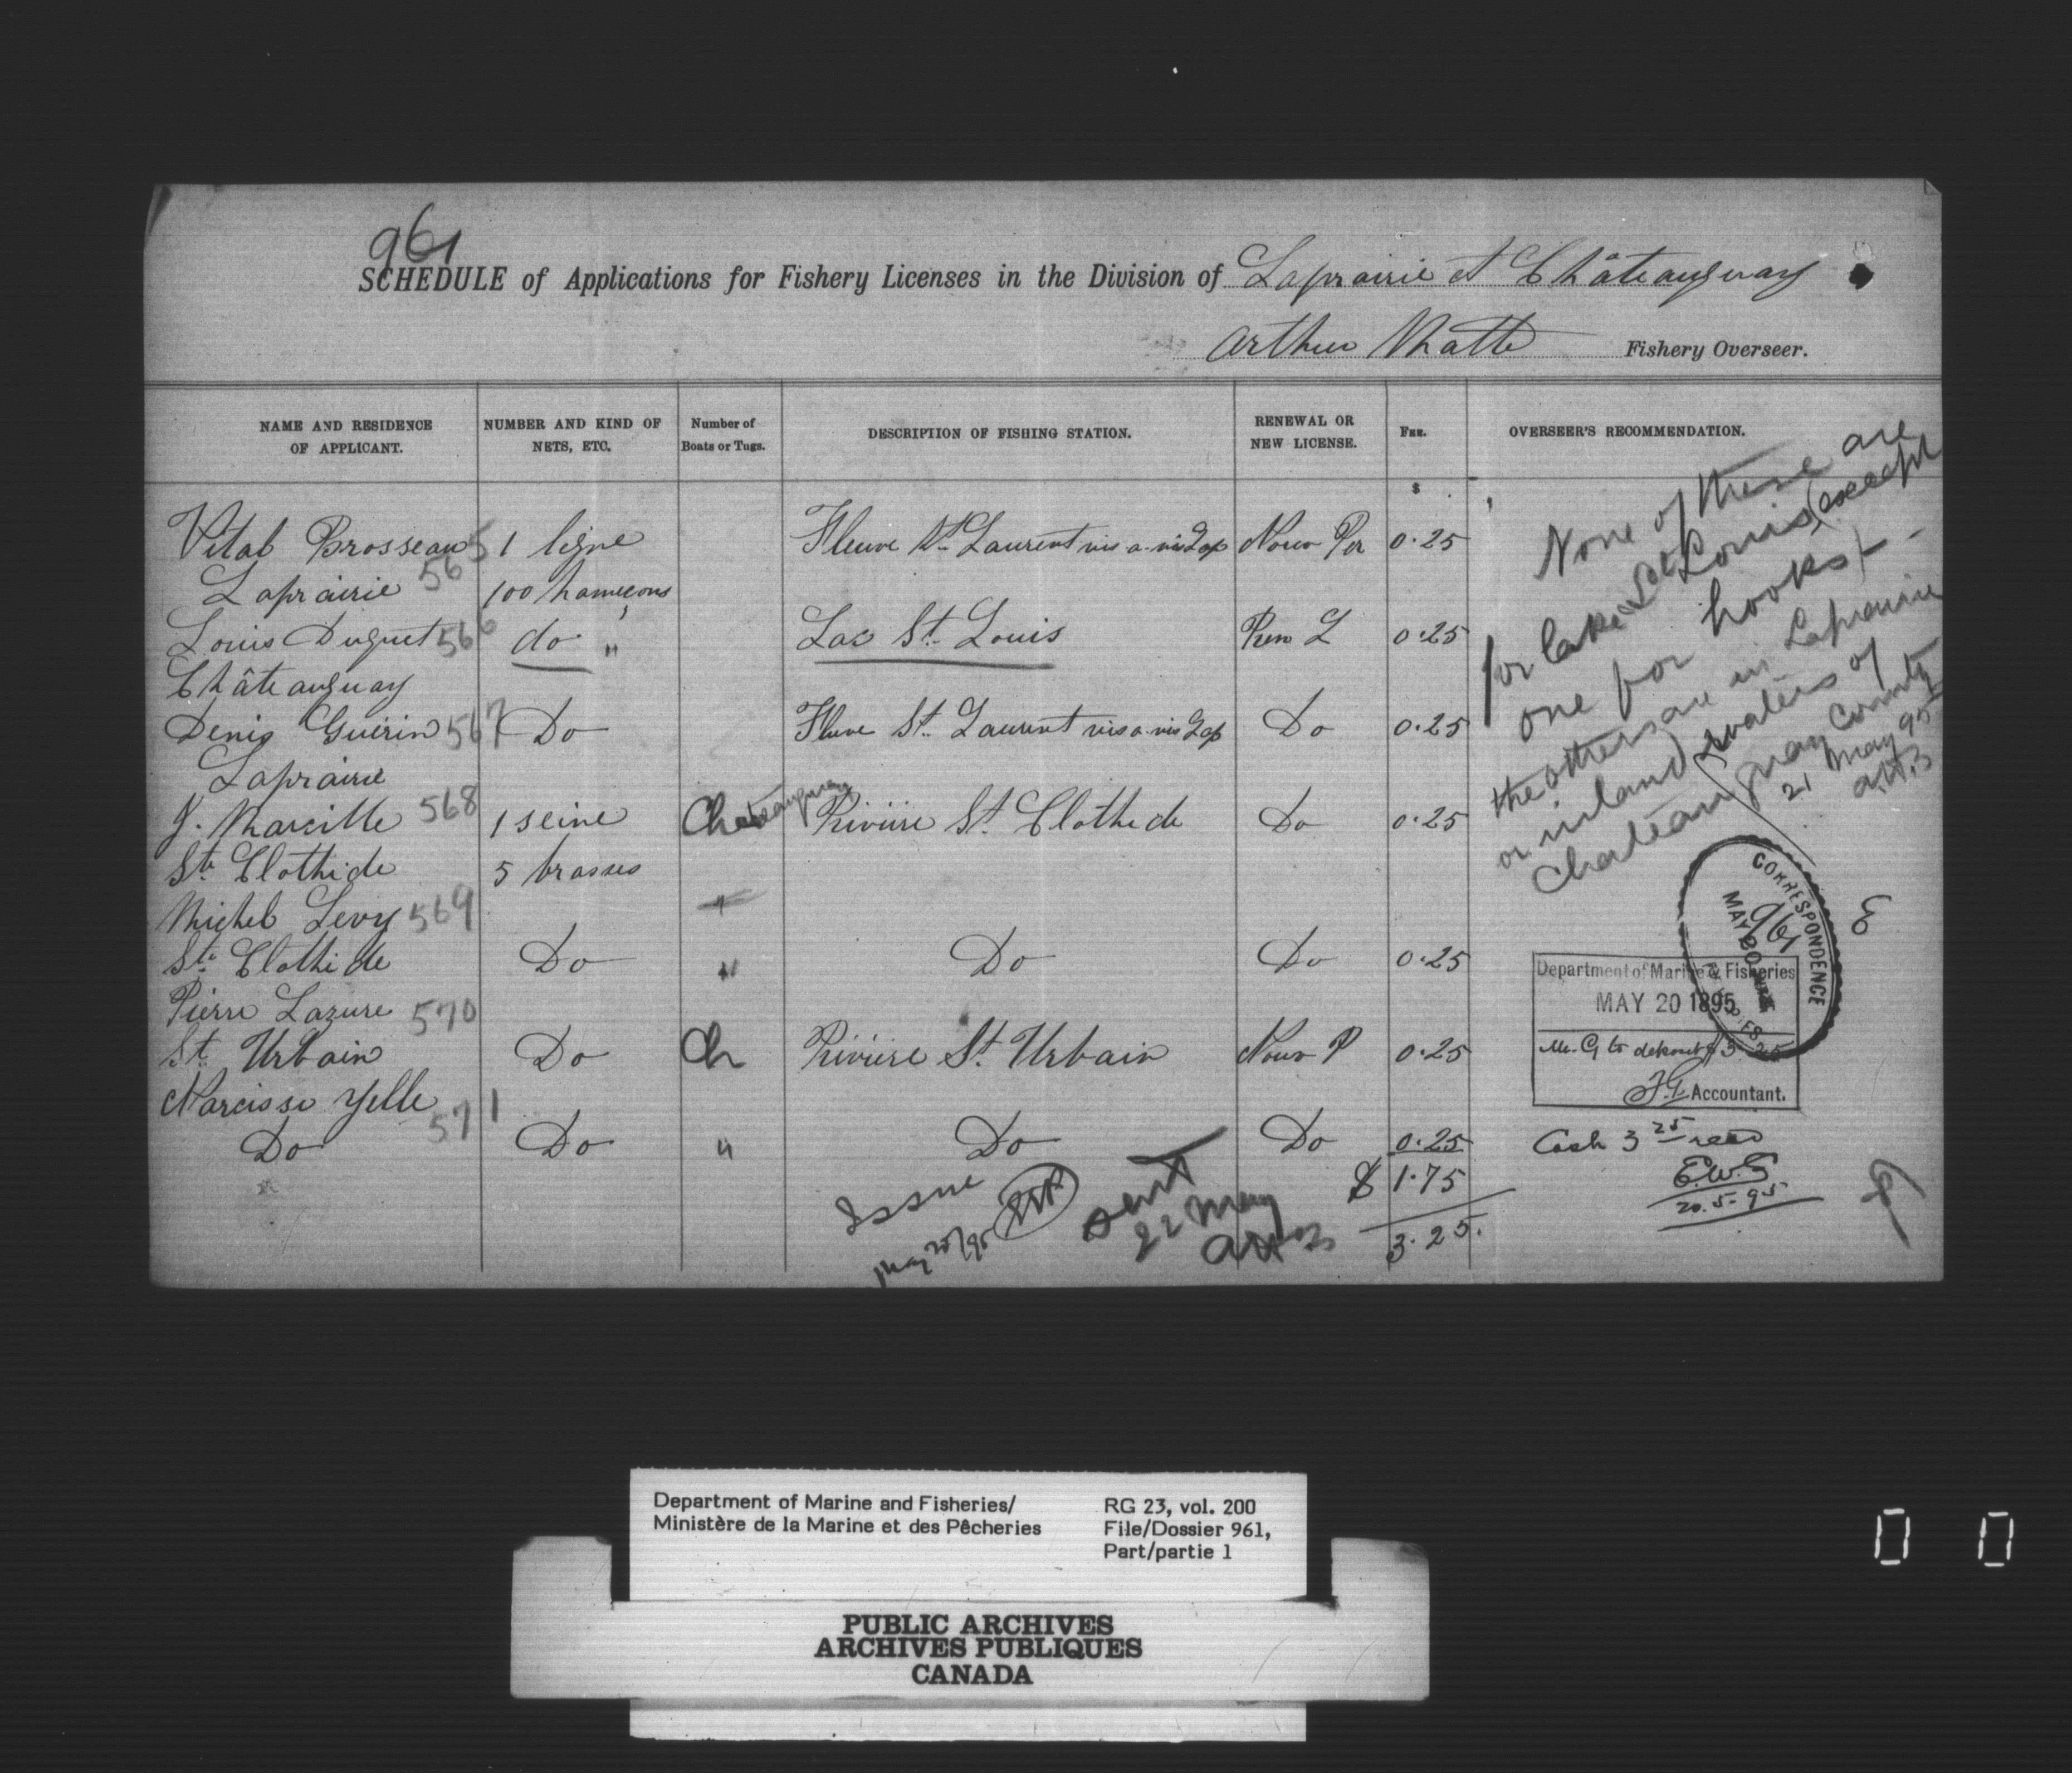 961
SCHEDULE of Applications for Fishery Licenses in the Division of Laprairie et Châteauguay
Arthur Matte Fishery Overseer.
NAME AND RESIDENCE OF APPLICANT. NUMBER AND KIND OF NETS, ETC. Number of Boats or Tugs. DESCRIPTION OF FISHING STATION. RENEWAL OR NEW LICENSE. FEE. OVERSEER'S RECOMMENDATION.
$
Vital Brosseau 565 1 ligne Fleuve St. Laurent vis a vis Lap Nouv Per 0.25
Laprairie 100 hameçons
Louis Duquet 566 do " Lac St. Louis Ren L 0.25
Châteauguay
Denis Guérin 567 Do Fleuve St. Laurent vis a vis Lap Do 0.25
Laprairie
J. Marcille 568 1 seine Chateauguay Rivière St. Clothide Do 0.25
Ste Clothide 5 brasses
Michel Levy 569 "
Ste Clothide Do " Do Do 0.25
Pierre Lazure 570
St. Urbain Do Ch Rivière St. Urbain Nouv P 0.25
Narcisse Yelle 571
Do Do " Do Do 0.25
$ 1.75
3.25.
None of these are
for lake St Louis (except
one for hooks)
the others are in Laprairie
or inland waters of
Chateauguay County
21 May 95
CORRESPONDENCE
961
MAY 20
Department of Marine & Fisheries
MAY 20 1895
Mr. G to deposit $3.25
Accountant.
Cash 3 25 recd
E.W.G
20.5.95
Issue
May 20/95
sent
22 May
Department of Marine and Fisheries/
Ministère de la Marine et des Pêcheries
RG 23, vol. 200
File/Dossier 961,
Part/partie 1
PUBLIC ARCHIVES
ARCHIVES PUBLIQUES
CANADA
0 0